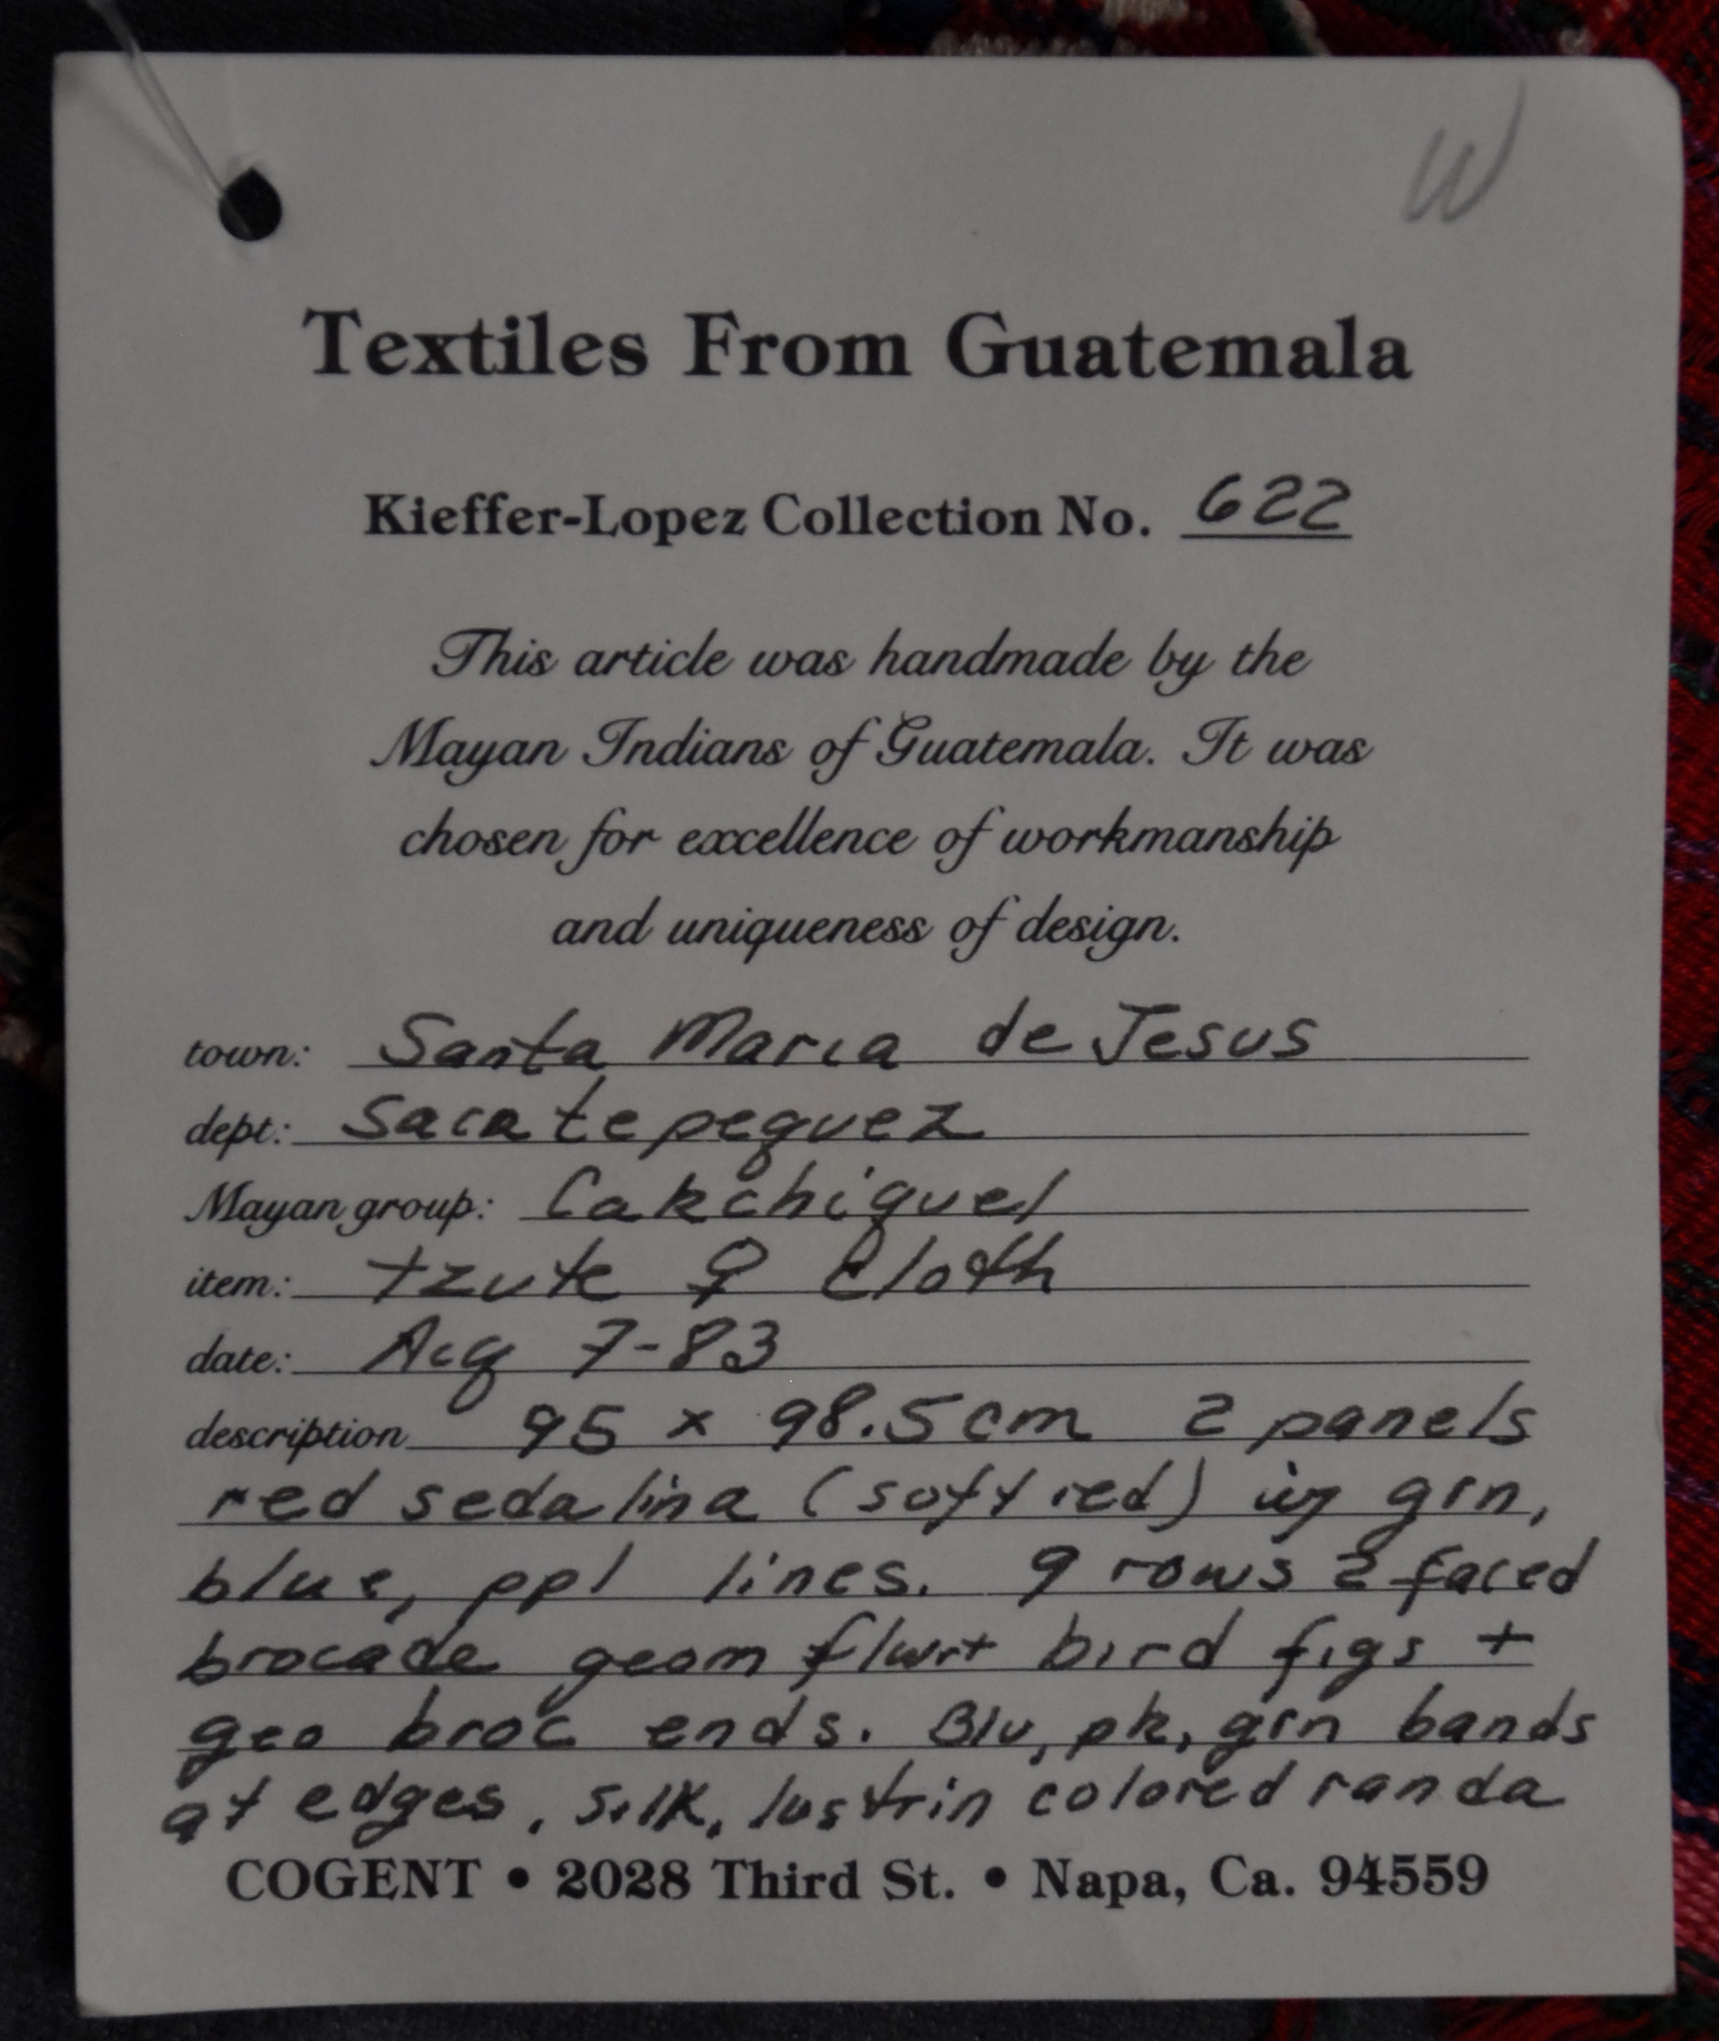 W
Textiles From Guatemala
Kieffer-Lopez Collection No. 622
This article was handmade by the
Mayan Indians of Guatemala. It was
chosen for excellence of workmanship
and uniqueness of design.
town: Santa Maria de Jesus
dept: Sacatepequez
Mayan group: Cakchiquel
item: tzute ♀ cloth
date: Acq 7-83
description 95 x 98.5cm 2 panels
red sedalina (soft red) grn,
blue, ppl lines. 9 rows 2 faced
brocade geom bird figs +
geo broc ends. Blu, pk, grn bands
at edges, silk, lustrin colored randa
COGENT • 2028 Third St. • Napa, Ca. 94559